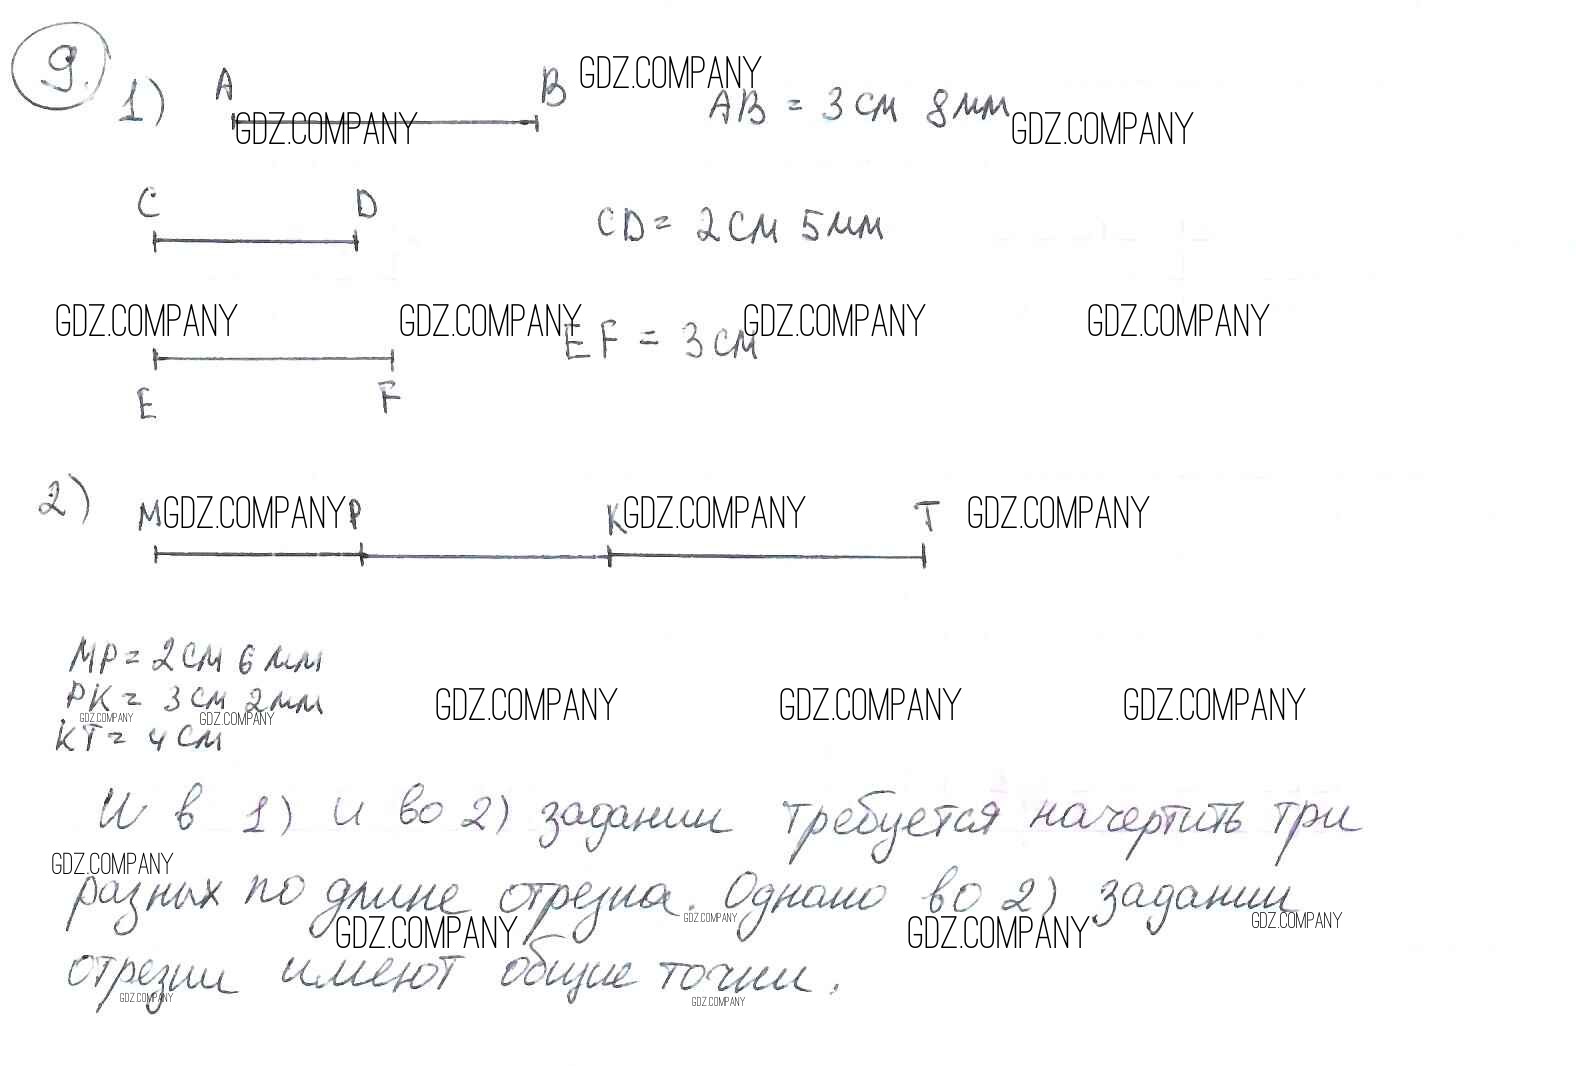 9.
1) A B GDZ.COMPANY AB = 3 см 8 мм
GDZ.COMPANY GDZ.COMPANY
C D CD = 2 см 5 мм
GDZ.COMPANY GDZ.COMPANY GDZ.COMPANY GDZ.COMPANY
EF = 3 см
E F
2) M GDZ.COMPANY P K GDZ.COMPANY T GDZ.COMPANY
MP = 2 см 6 мм
PK = 3 см 2 мм GDZ.COMPANY GDZ.COMPANY GDZ.COMPANY
GDZ.COMPANY GDZ.COMPANY
KT = 4 см
И в 1) и во 2) задании требуется начертить три
GDZ.COMPANY
разных по длине отрезка. Однако во 2) задании
GDZ.COMPANY GDZ.COMPANY GDZ.COMPANY GDZ.COMPANY
отрезки имеют общие точки.
GDZ.COMPANY GDZ.COMPANY